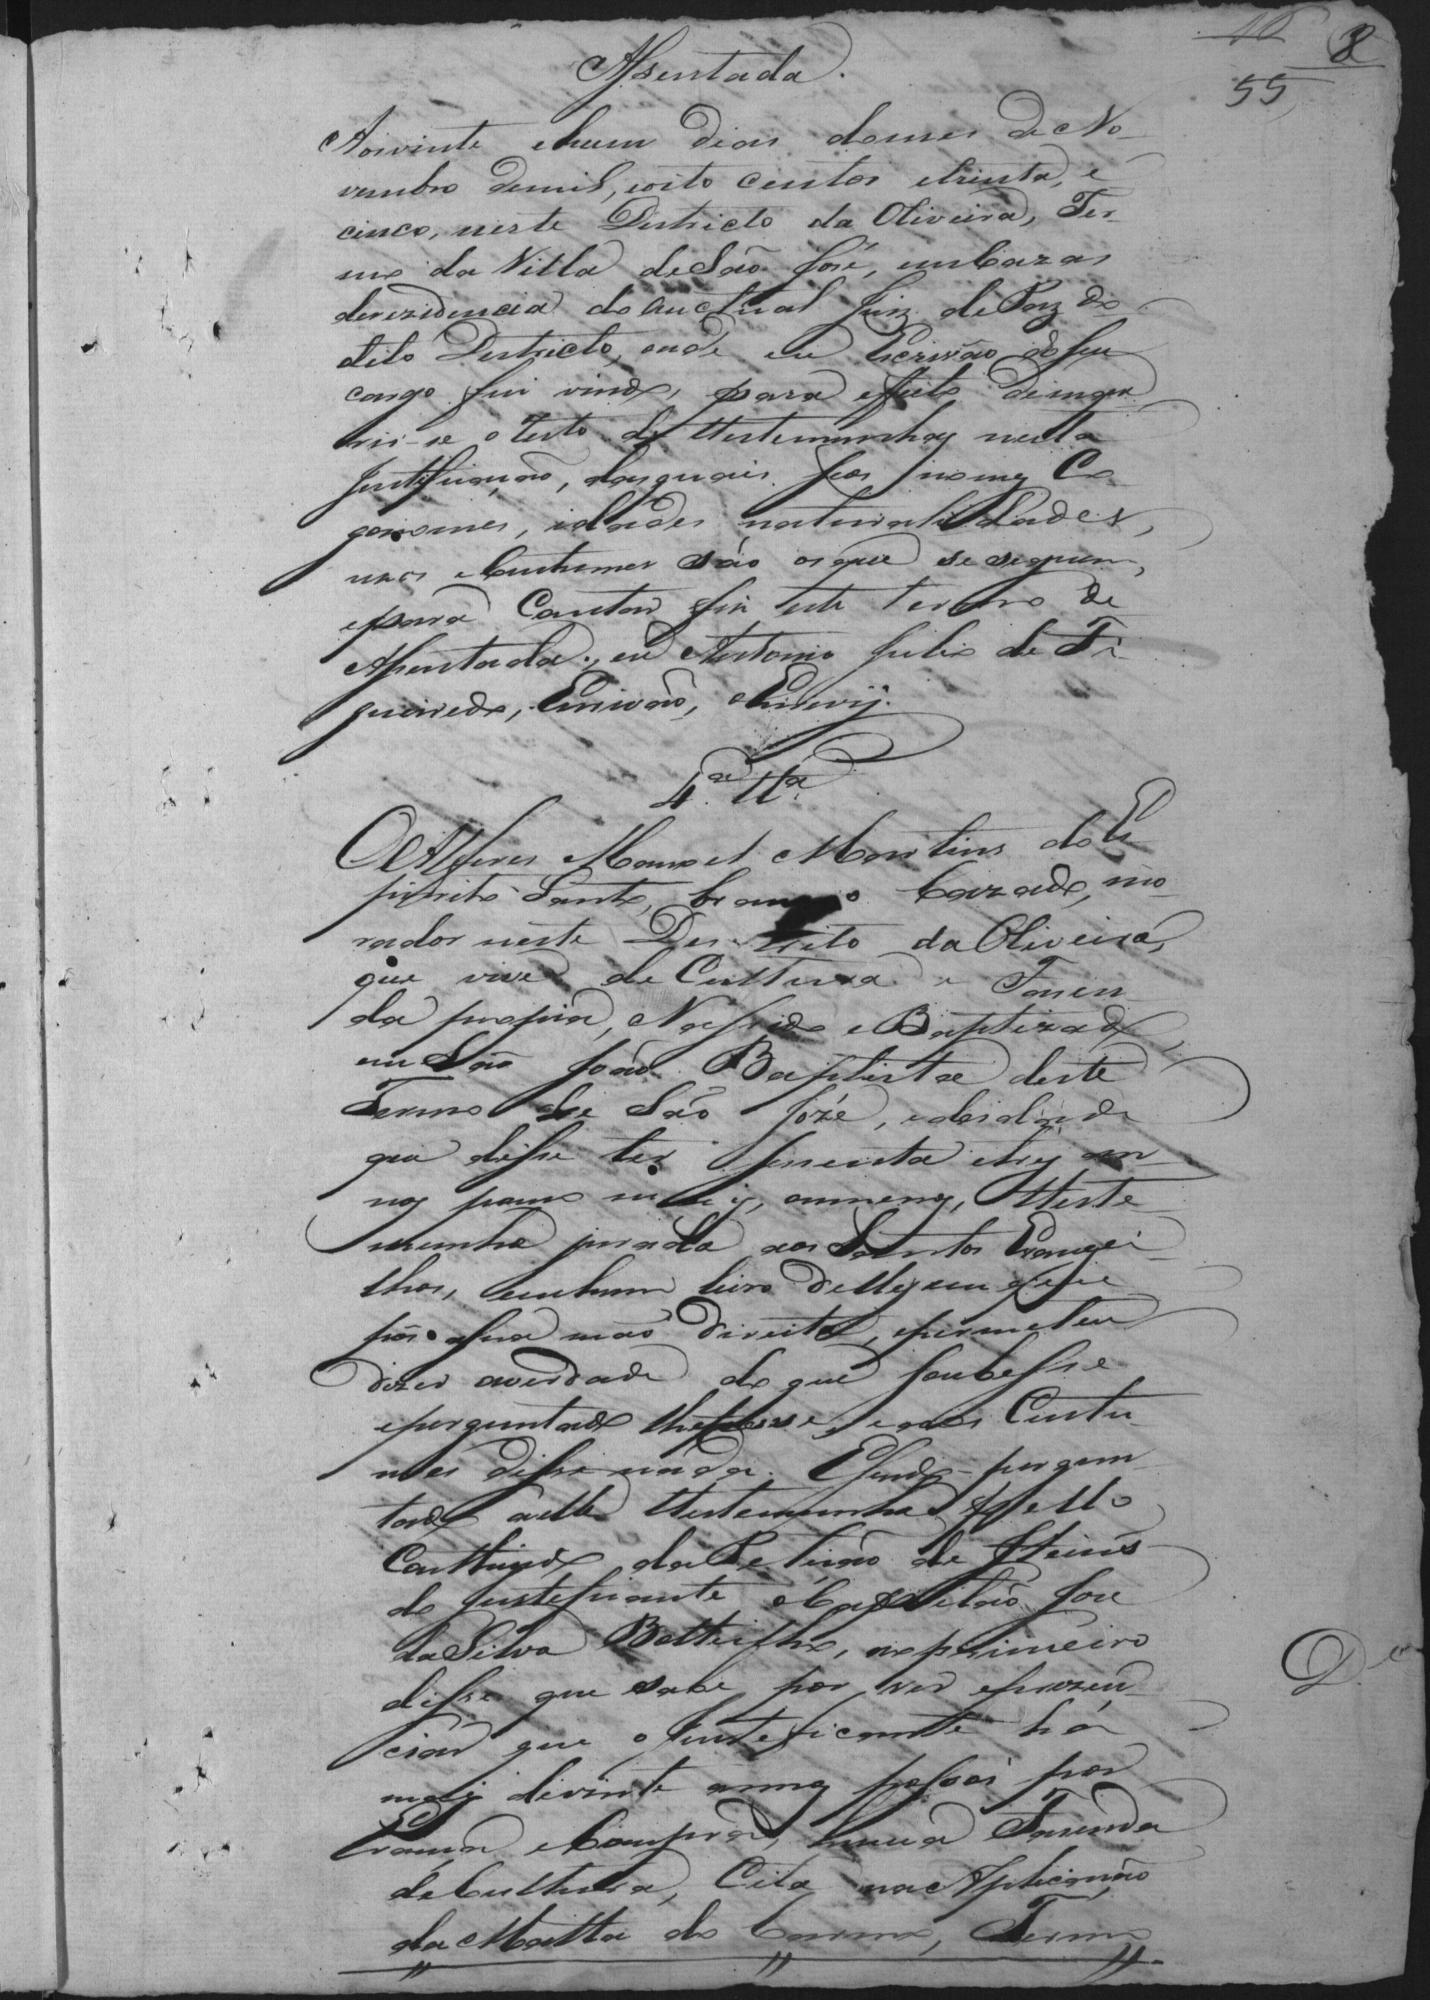 8
55
Assentada.
Aos vinte e hum dias do mes de No
vembro de mil, oito centos e trinta, e
cinco, neste Districto da Oliveira, Ter
mo da Villa de São José, em Cazas
de rezidencia do auctual Juiz de Paz do
dito Districto, onde eu Escrivão do seu
cargo fui vindo, para effeito de inque
rir-se o resto de testemunhas nesta
Justificação, das quais seos nomes Co
gonomes, idades, naturalidades,
uzos e Custumes são os que se seguem,
e para Constar fiz este termo de
Assentada., eu Antonio Felix de Fi
gueiredo, Escrivão, o Escrevij.
4.ª Tt.ª
O Alferes Manoel Martins do Es
pirito Santo, branco Cazado, mo
rador neste Districto da Oliveira,
que vive de Cultura e Fazen
da propria, Nascido e Baptizado
em São João Baptista deste
Termo de São Jozé, e de idade
que disse ter secenta e tres an
nos pouco mais, ou menos, Teste
munha jurada aos Santos Evange
lhos, em hum livro delles em que
pôs a sua mão direita, e prometeu
dizer a verdade do que soubesse
e perguntado lhe fosse, e aos Custu
mes disse nada. E sendo pergun
tado a elle testemunha pello
Conthiudo da Petição de Itens
do Justeficante o Capitão José
da Silva Botteilho, ao primeiro
disse que sabe por ver e prezen
ciar que o Justeficante há
mais de vinte annos possui por
Crama e Compra, huma Fazenda
de Cultura, Cita na Aplicação
da Matta do Carmo, Termo